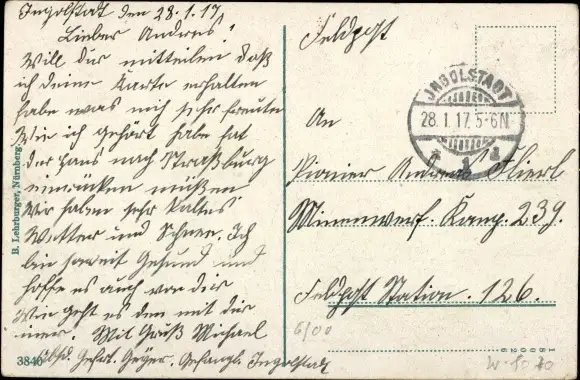 Ingolstadt den 28.1.17.
Lieber Andreas!
Will dir mitteilen daß
ich deine Karte erhalten
habe was mich sehr freute
Wie ich gehört habe hat
der Hans nach Straßburg
einrücken müßen
Wir haben sehr kaltes
Wetter und Schnee. Ich
bin soweit Gesund und
hoffe es auch von dir
Wie geht es den mit dir
imer. Mit Gruß Michael
Geyer. Ingolstadt
3840
B. Lehrburger, Nürnberg
Feldpost
INGOLSTADT
28.1.17.5-6N
1
An
Pionier Andreas Flierl
Minenwerf. Komp. 239.
Feldpost Station. 126.
6/00